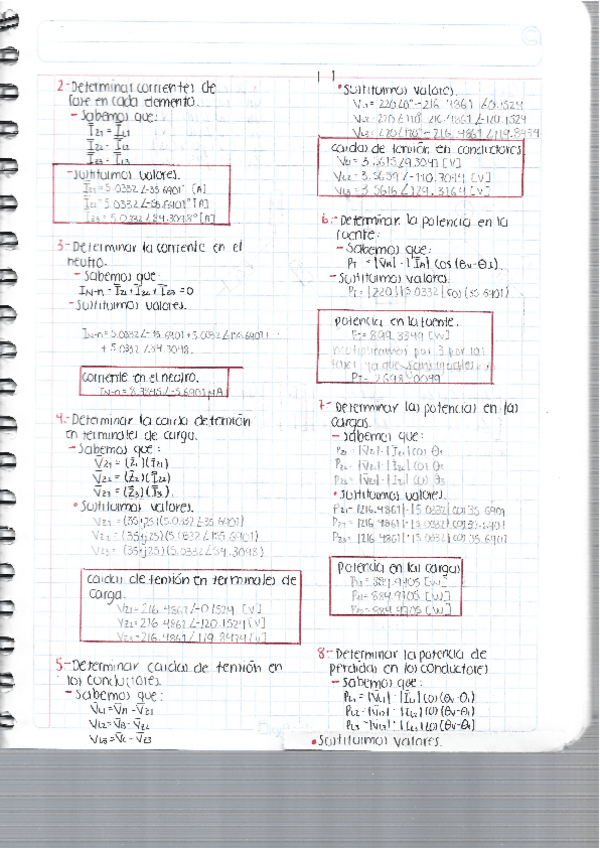 2-Determinar corrientes de
fase en cada elemento.
- Sabemos que:
I̅z1 = I̅L1
I̅z2 = I̅L2
I̅z3 = I̅L3
- Sustituimos valores.
I̅z1= 5.0332∠-35.6901° [A]
[A]
I̅z3= 5.0332∠84.3098° [A]
3- Determinar la corriente en el
neutro.
- Sabemos que
IN-n = I̅z1 + I̅z2 + I̅z3 = 0
- Sustituimos valores.
+ 5.0332∠84.3098
corriente en el neutro.
4.- Determinar la caída de tensión
en terminales de carga.
- Sabemos que:
V̅z1 = (Z̅1)(I̅z1)
V̅z2 = (Z̅2)(I̅z2)
V̅z3 = (Z̅3)(I̅3)
• Sustituimos valores.
Vz1 = (35+j25)(5.0332∠-35.6901)
Vz2 = (35+j25)(5.0332∠-155.6901)
Vz3 = (35+j25)(5.0332∠84.3098)
caídas de tensión en terminales de
carga.
Vz1= 216.4861∠-0.1524 [V]
Vz2= 216.4861∠-120.1524 [V]
Vz3= 216.4861∠119.8474 [V]
5-Determinar caídas de tensión en
los conductores.
- Sabemos que:
VL1= V̅A - V̅z1
VL2= V̅B - V̅z2
VL3= V̅C - V̅z3
• Sustituimos valores.
caídas de tensión en conductores
6.- Determinar la potencia en la
fuente:
- Sabemos que:
PT = |V̅A| · |I̅A| cos (θv - θI).
- Sustituimos valores.
P1= |220| |5.0332| cos (35.6901)
potencia en la fuente.
[W]
multiplicamos por 3 por las
fases ya que son iguales
PT= 2698.0049
7- Determinar las potencias en las
cargas.
- Sabemos que:
• Sustituimos valores.
Pz1= |216.4861| · |5.0332| cos 35.6901
Pz2= |216.4861| · |5.0332| cos 35.6901
Pz3= |216.4861| · |5.0332| cos 35.6901
Potencia en las cargas
Pz1= 884.9705 [W]
Pz2= 884.9705 [W]
Pz3= 884.9705 [W]
8- Determinar la potencia de
perdidas en los conductores
- Sabemos que:
PL1 = |V̅L1| · |I̅L1| cos (θv - θI)
PL2 = |V̅L2| · |I̅L2| cos (θv - θI)
PL3 = |V̅L3| · |I̅L3| cos (θv - θI)
• Sustituimos valores.